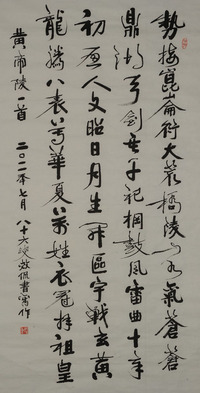 勢接崑崙衍大荒橋陵氣蒼蒼
鼎湖弓劍垂千祀桐鼓風雷曲十章
初人文昭日月生開區宇戰玄黃
龍騰八表尊華夏萬姓衣冠拜祖皇
黃帝陵一首 二〇二一年七月 八十六叟效侃書寫作